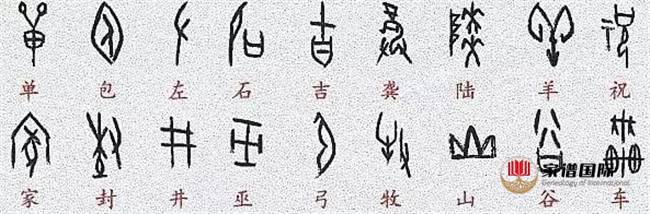 单 包 左 石 吉 龚 陆 羊 祝
家 封 井 巫 弓 牧 山 谷 车
家谱国际
Genealogy of International